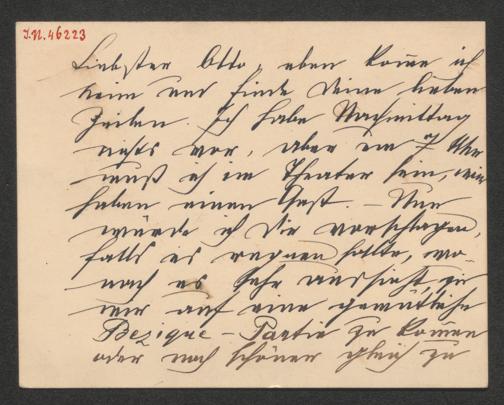 J.N. 46223
Liebster Otto, eben kome ich
heim und finde Deine lieben
Zeilen. Ich habe Nachmittag
nichts vor, aber um 7 Uhr
muß ich im Theater sein, wir
haben einen Gast. – Nun
würde ich Dir vorschlagen,
falls es regnen sollte, wo-
nach es sehr aussieht, zu
mir auf eine gemütliche
Bezique-Partie zu komen
oder noch schöner gleich zu